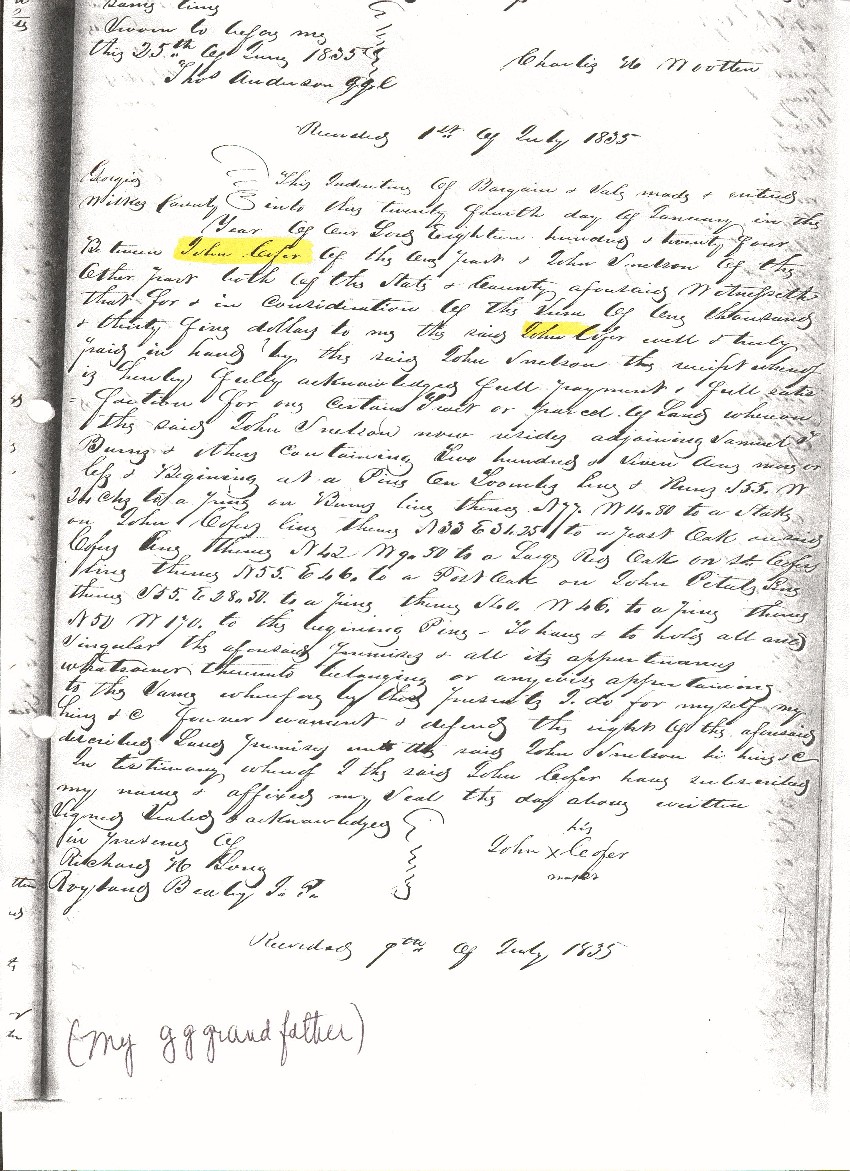 same time
Sworn to before me
this 25th of June 1835
Thos Anderson JJC
Charles W Wootten
Recorded 1st of July 1835
Georgia This Indenture of Bargain & Sale made & entered
Wilkes County into this twenty fourth day of January in the
Year of Our Lord Eighteen hundred & twenty four
Between John Cofer of the One part & John Snelson of the
Other part both of the State & County aforesaid Witnesseth
that for & in Consideration of the Sum of One thousand
& thirty five dollars to me the said John Cofer well & truly
paid in hand by the said John Snelson the receipt whereof
is hereby fully acknowledged full payment & full satis
= faction for one certain or parcel of Land whereon
the said John Snelson now resides adjoining Samuel
Burns & others containing Two hundred & Seven Acres more or
less & Begining at a Pine On Toombs line & Runs S55. W
24 Chs to a pine on Burns line thence N77. W14.80 to a Stake
on John Cofers line thence N33 E31.25 to a post Oak on said
Cofers line thence N42 W9.50 to a Large Red Oak on sd. Cofers
line thence N55. E46. to a Post Oak on John Petuls line
thence S55. E28.50. to a pine thence S40. W46. to a pine thence
N50 W170. to the begining Pine - To have & to hold all and
Singular the aforesaid premises & all its appertinances
whatsoever thereunto belonging or anywise appertaining
to the Same wherefore by these presents I do for myself my
heirs &c forever warrant & defend the right of the aforesaid
described Land premises unto the said John Snelson his heirs &c
In testimony whereof I the said John Cofer have subscribed
my name & affixed my Seal the day above written
Signed Sealed & acknowledged
in presence of
his
Richard H Long
John x Cofer
mark
Royland Beasley J. P.
Recorded 9th of July 1835
(my g g grandfather)